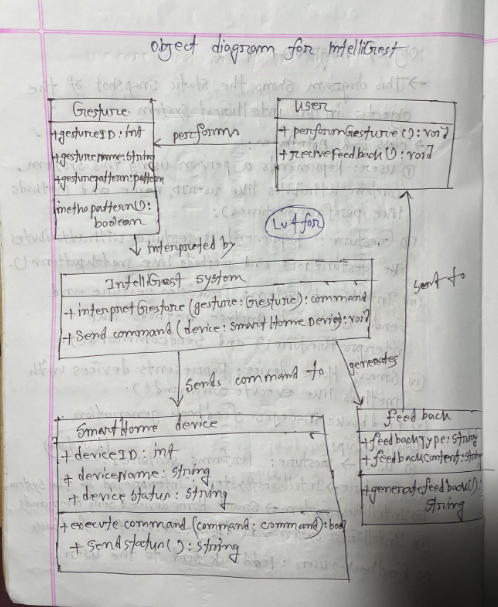 object diagram for IntelliGrest
Gesture
+gestureID: int
+gesturename: string
+gesturepattern: pattern
methopattern():
boolean
performs
user
+ performGesture(): void
+ reciveFeedback(): void
Lv4for
interpreted by
IntelliGrest system
+ interpretGresture (gesture: Gresture): command
+ Send command (device: smartHome Device): void
sent to
Sends command to
generates
SmartHome device
+ deviceID: int
+ deviceName: string
+ device status: string
+ execute command (command: command): bool
+ sendstatus(): string
feed back
+feedbackType: string
+feedbackcontent: string
+generatefeedback():
string